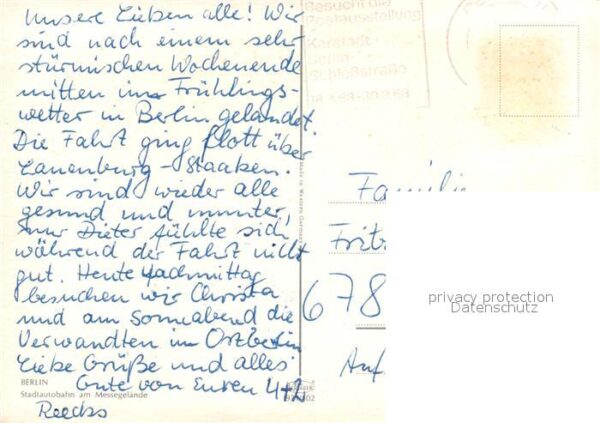 Unsere Lieben alle! Wir
sind nach einem sehr
stürmischen Wochenende
mitten im Frühlings-
wetter in Berlin gelandet.
Die Fahrt ging flott über
Lauenburg - Staaken.
Wir sind wieder alle
gesund und munter,
nur Dieter fühlte sich
während der Fahrt nicht
gut. Heute Nachmittag
besuchen wir Christa
und am Sonnabend die
Verwandten in Ostberlin
Liebe Grüße und alles
Gute von Euren
BERLIN
Stadtautobahn am Messegelände
Besucht die
Postausstellung
Karstadt -
Berlin
Schloßstraße
Familie
Fritz
678
Auf
privacy protection
Datenschutz